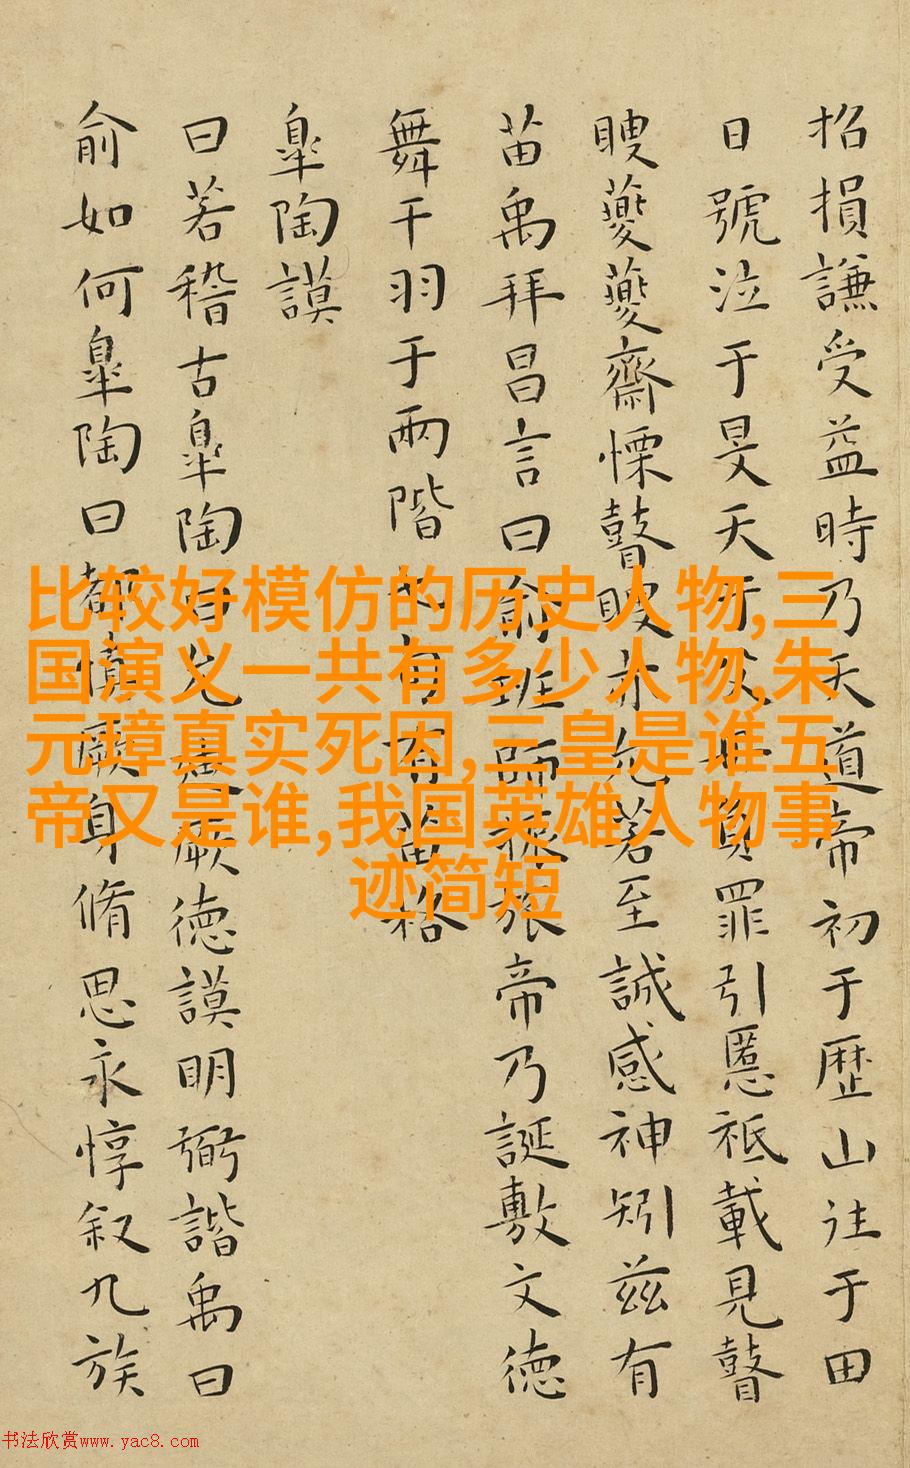 招損謙受益時乃天道帝初于歴山往于田
日號泣于旻天于父母負罪引慝祗載見瞽
瞍夔夔齋慄瞽瞍亦允若至諴感神矧茲有
苗禹拜昌言曰俞班師振旅帝乃誕敷文德
舞干羽于兩階七旬有苗格
皐陶謨
曰若稽古皐陶曰允迪厥德謨明弼諧禹曰
俞如何皐陶曰都慎厥身脩思永惇叙九族
比较好模仿的历史人物,三
国演义一共有多少人物,朱
元璋真实死因,三皇是谁五
帝又是谁,我国英雄人物事
迹简短
书法欣赏www.yac8.com